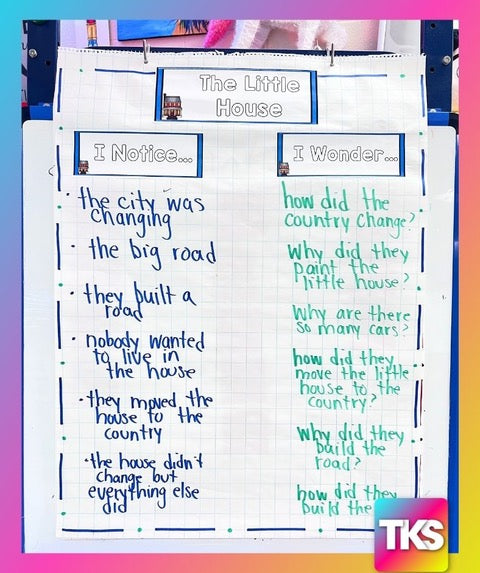 The Little
House
I Notice...
• the city was
changing
• the big road
• they built a
road
• nobody wanted
to live in
the house
• they moved the
house to the
country
• the house didn't
change but
everything else
did
I Wonder...
how did the
country change?
Why did they
paint the
little house?
Why are there
so many cars?
how did they
move the little
house to the
country?
Why did they
build the
road?
how did they
build the
TKS